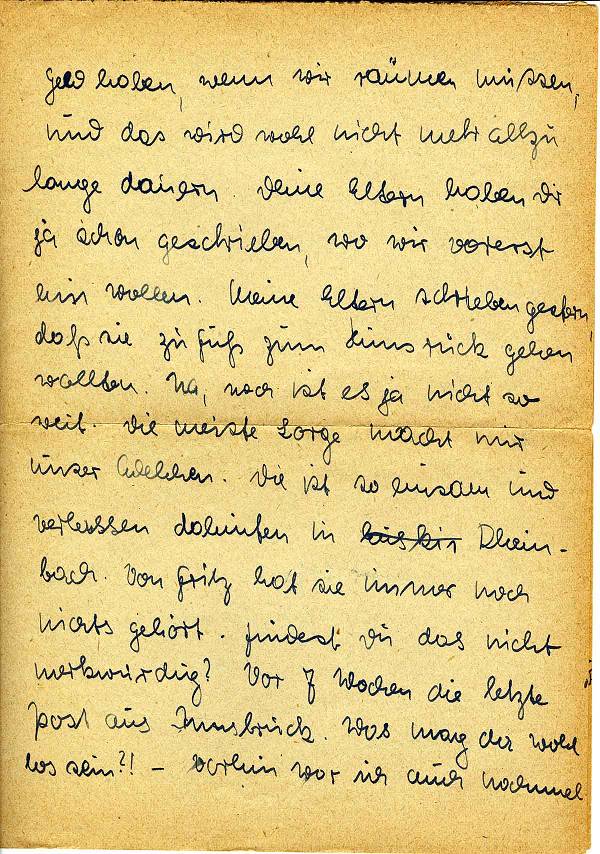 Geld haben, wenn wir räumen müssen,
und das wird wohl nicht mehr allzu
lange dauern. Deine Eltern haben Dir
ja schon geschrieben, wo wir vorerst
hin wollen. Meine Eltern schrieben gestern,
daß sie zu Fuß zum Hunsrück gehen
wollten. Na, noch ist es ja nicht so
weit. Die meiste Sorge macht mir
unser . Die ist so einsam und
verlassen dahinten in Rhein-
bach. Von Fritz hat sie immer noch
nichts gehört. Findest Du das nicht
merkwürdig? Vor 7 Wochen die letzte
Post aus Innsbruck. Was mag da wohl
los sein?! – Vorhin war ich auch nochmal